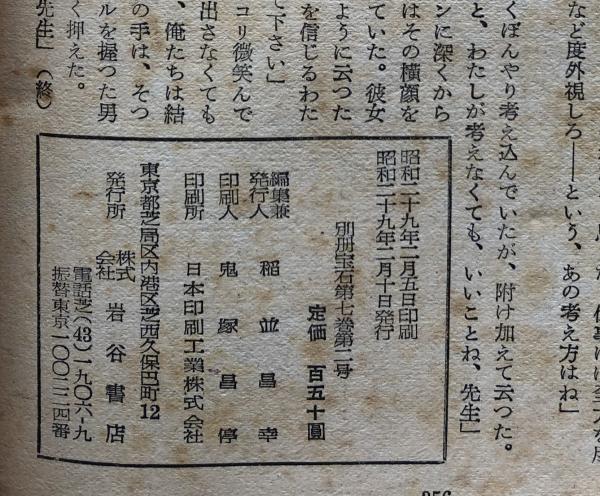 など度外視しろ――という、あの考え方はね」
くぼんやり考え込んでいたが、附け加えて云つた。
と、わたしが考えなくても、いいことね、先生」
ンに深くから
はその横顔を
ていた。彼女
ように云つた
を信じるわた
て下さい」
コリ微笑んで
出さなくても
、俺たちは結
の手は、そつ
ルを握つた男
く押えた。
先生」（終）
昭和二十九年二月五日印刷
昭和二十九年二月十日発行
別冊宝石第七巻第二号
定価 百五十圓
編集兼発行人 稲並昌幸
印刷人 鬼塚昌停
印刷所 日本印刷工業株式会社
東京都芝局区内港区芝西久保巴町12
発行所 株式会社 岩谷書店
電話芝(43)一九〇六―九
振替東京一〇〇二二四番
256